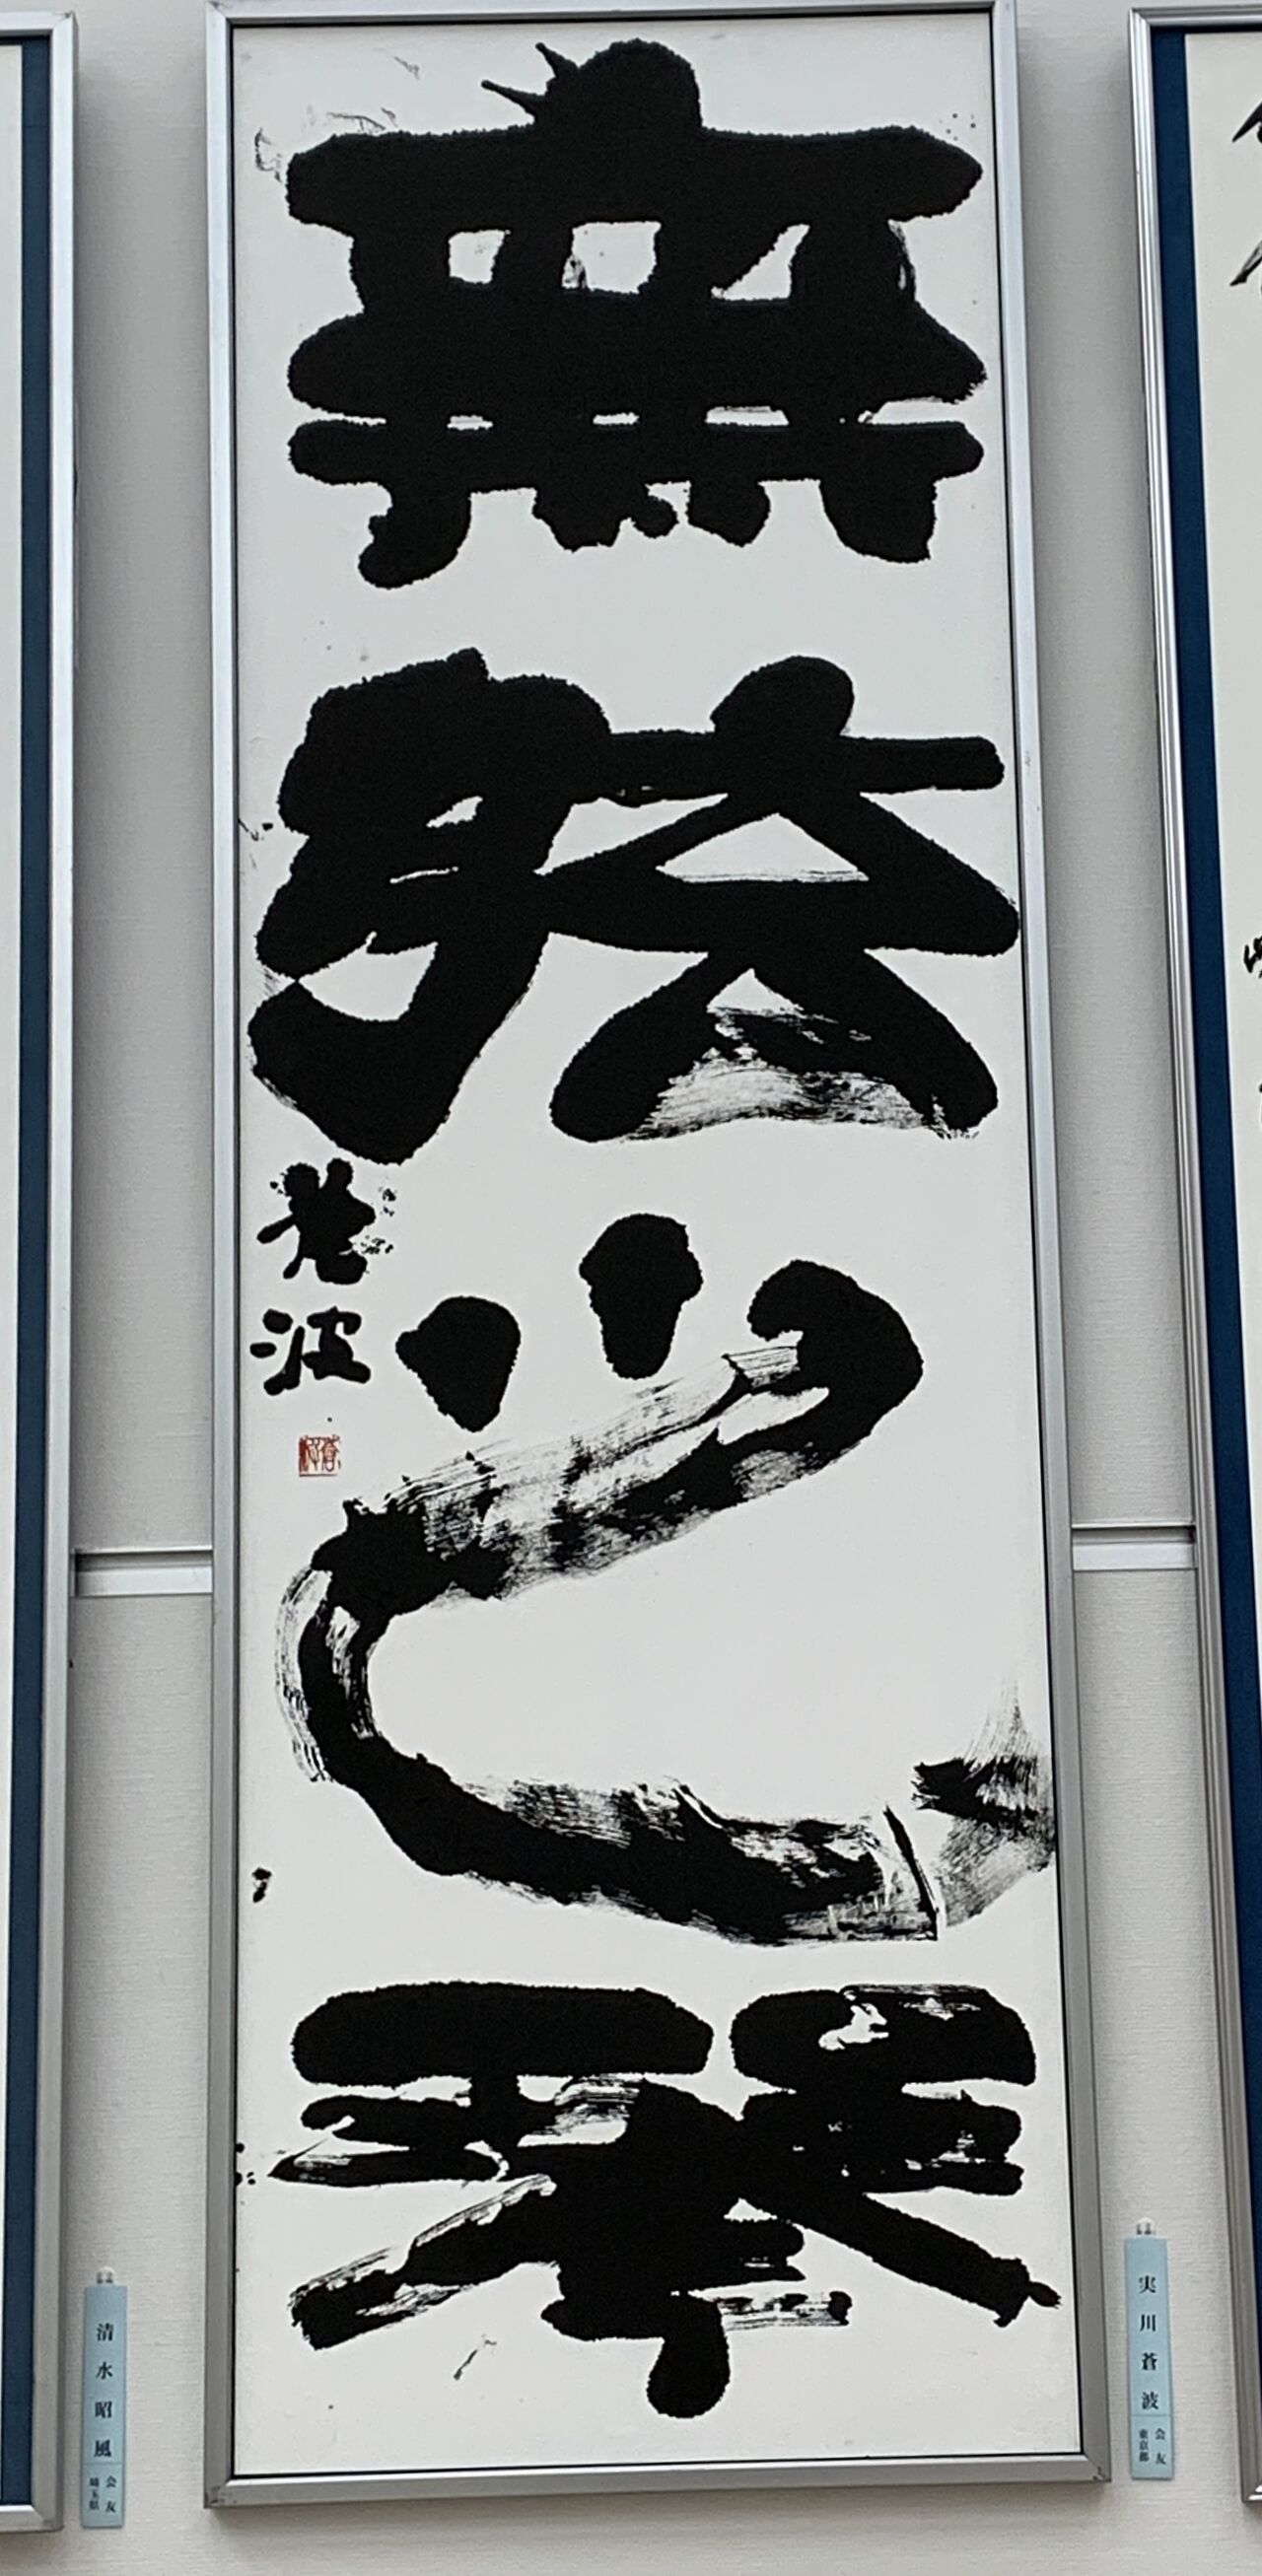 無弦之琴
蒼波
実川蒼波
会友
東京都
清水昭風
会友
埼玉県